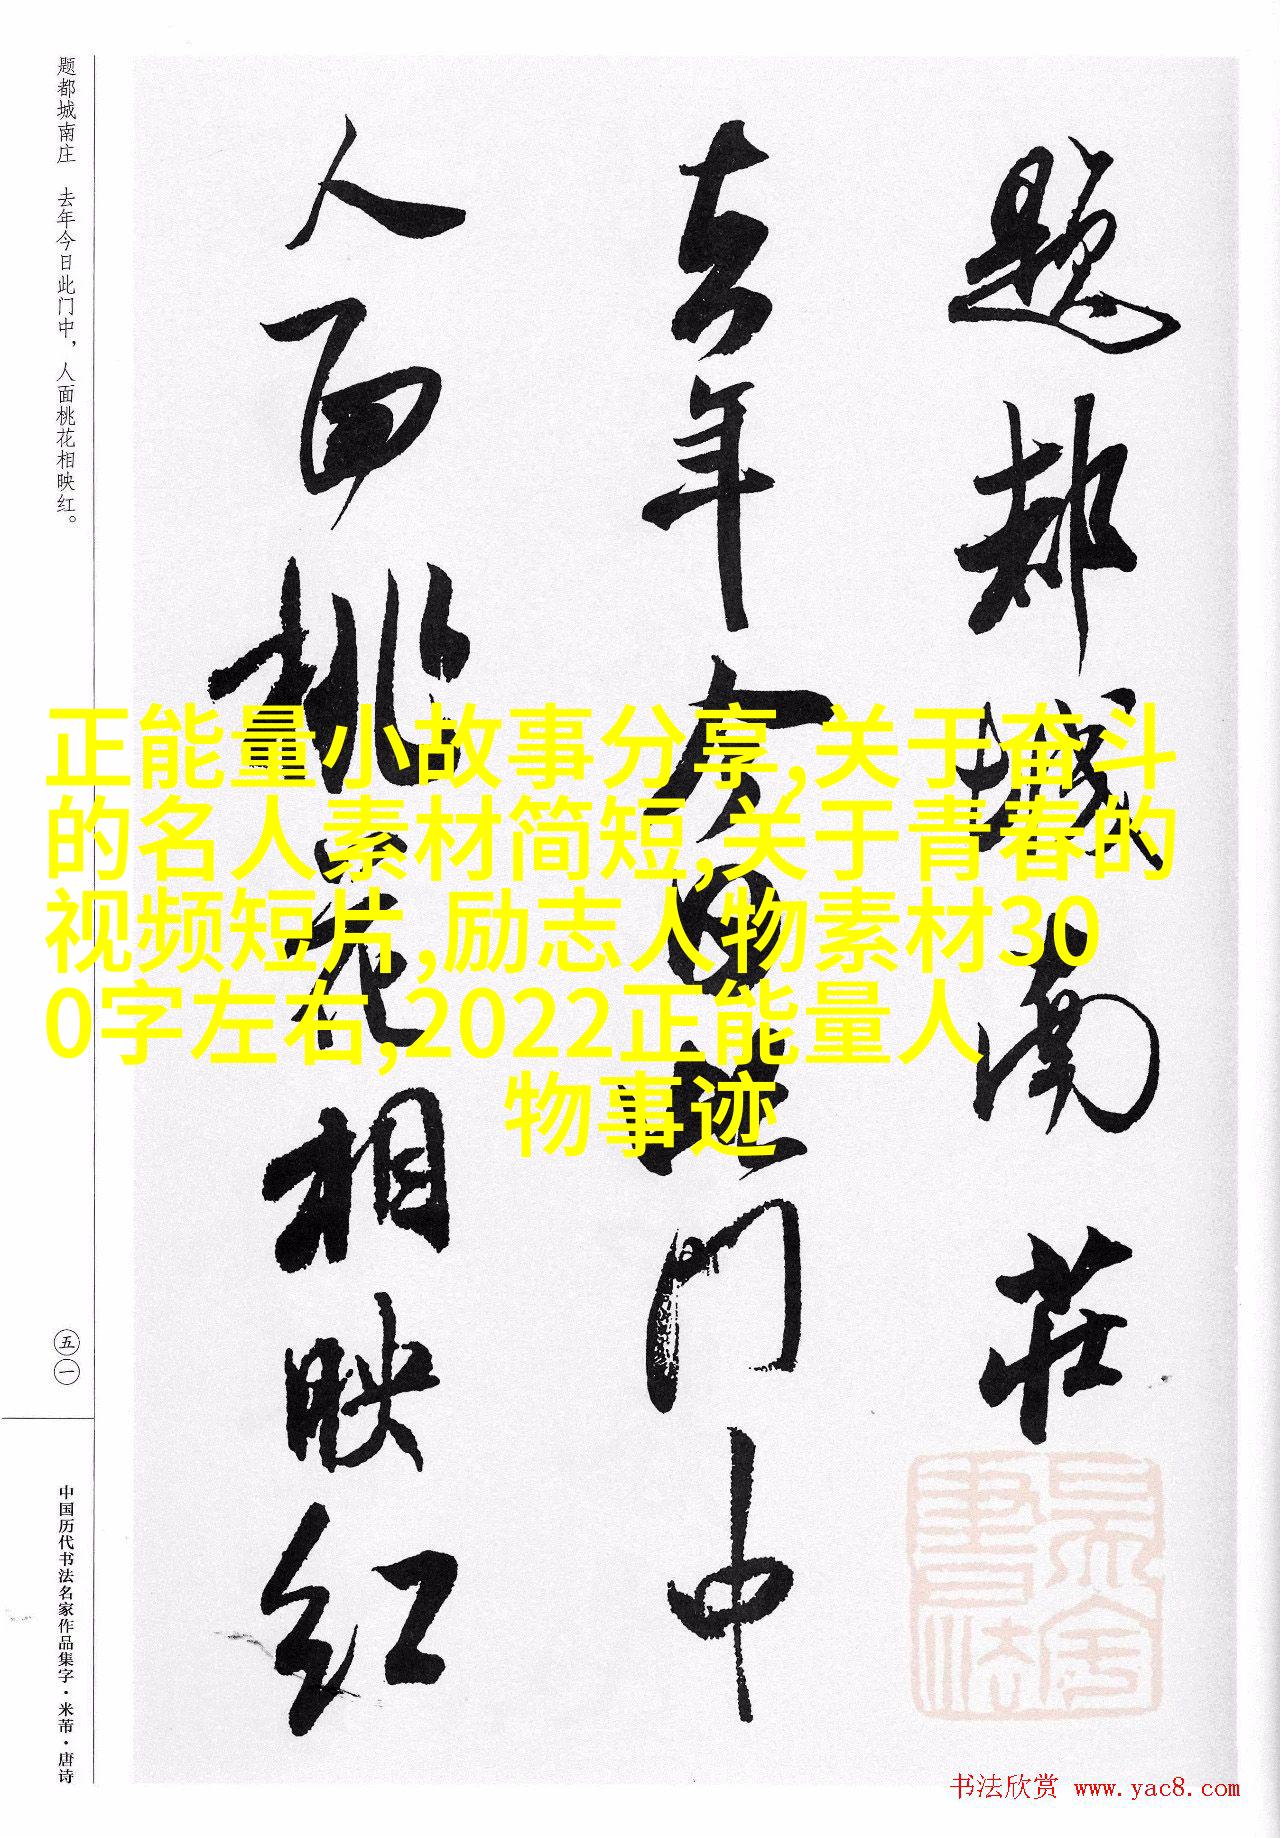 题都城南庄 去年今日此门中，人面桃花相映红。
題都城南莊
去年今日此门中
人面桃花相映红
正能量小故事分享,关于奋斗
的名人素材简短,关于青春的
视频短片,励志人物素材30
0字左右,2022正能量人
物事迹
五一
中国历代书法名家作品集字·米芾·唐诗
书法欣赏 www.yac8.com